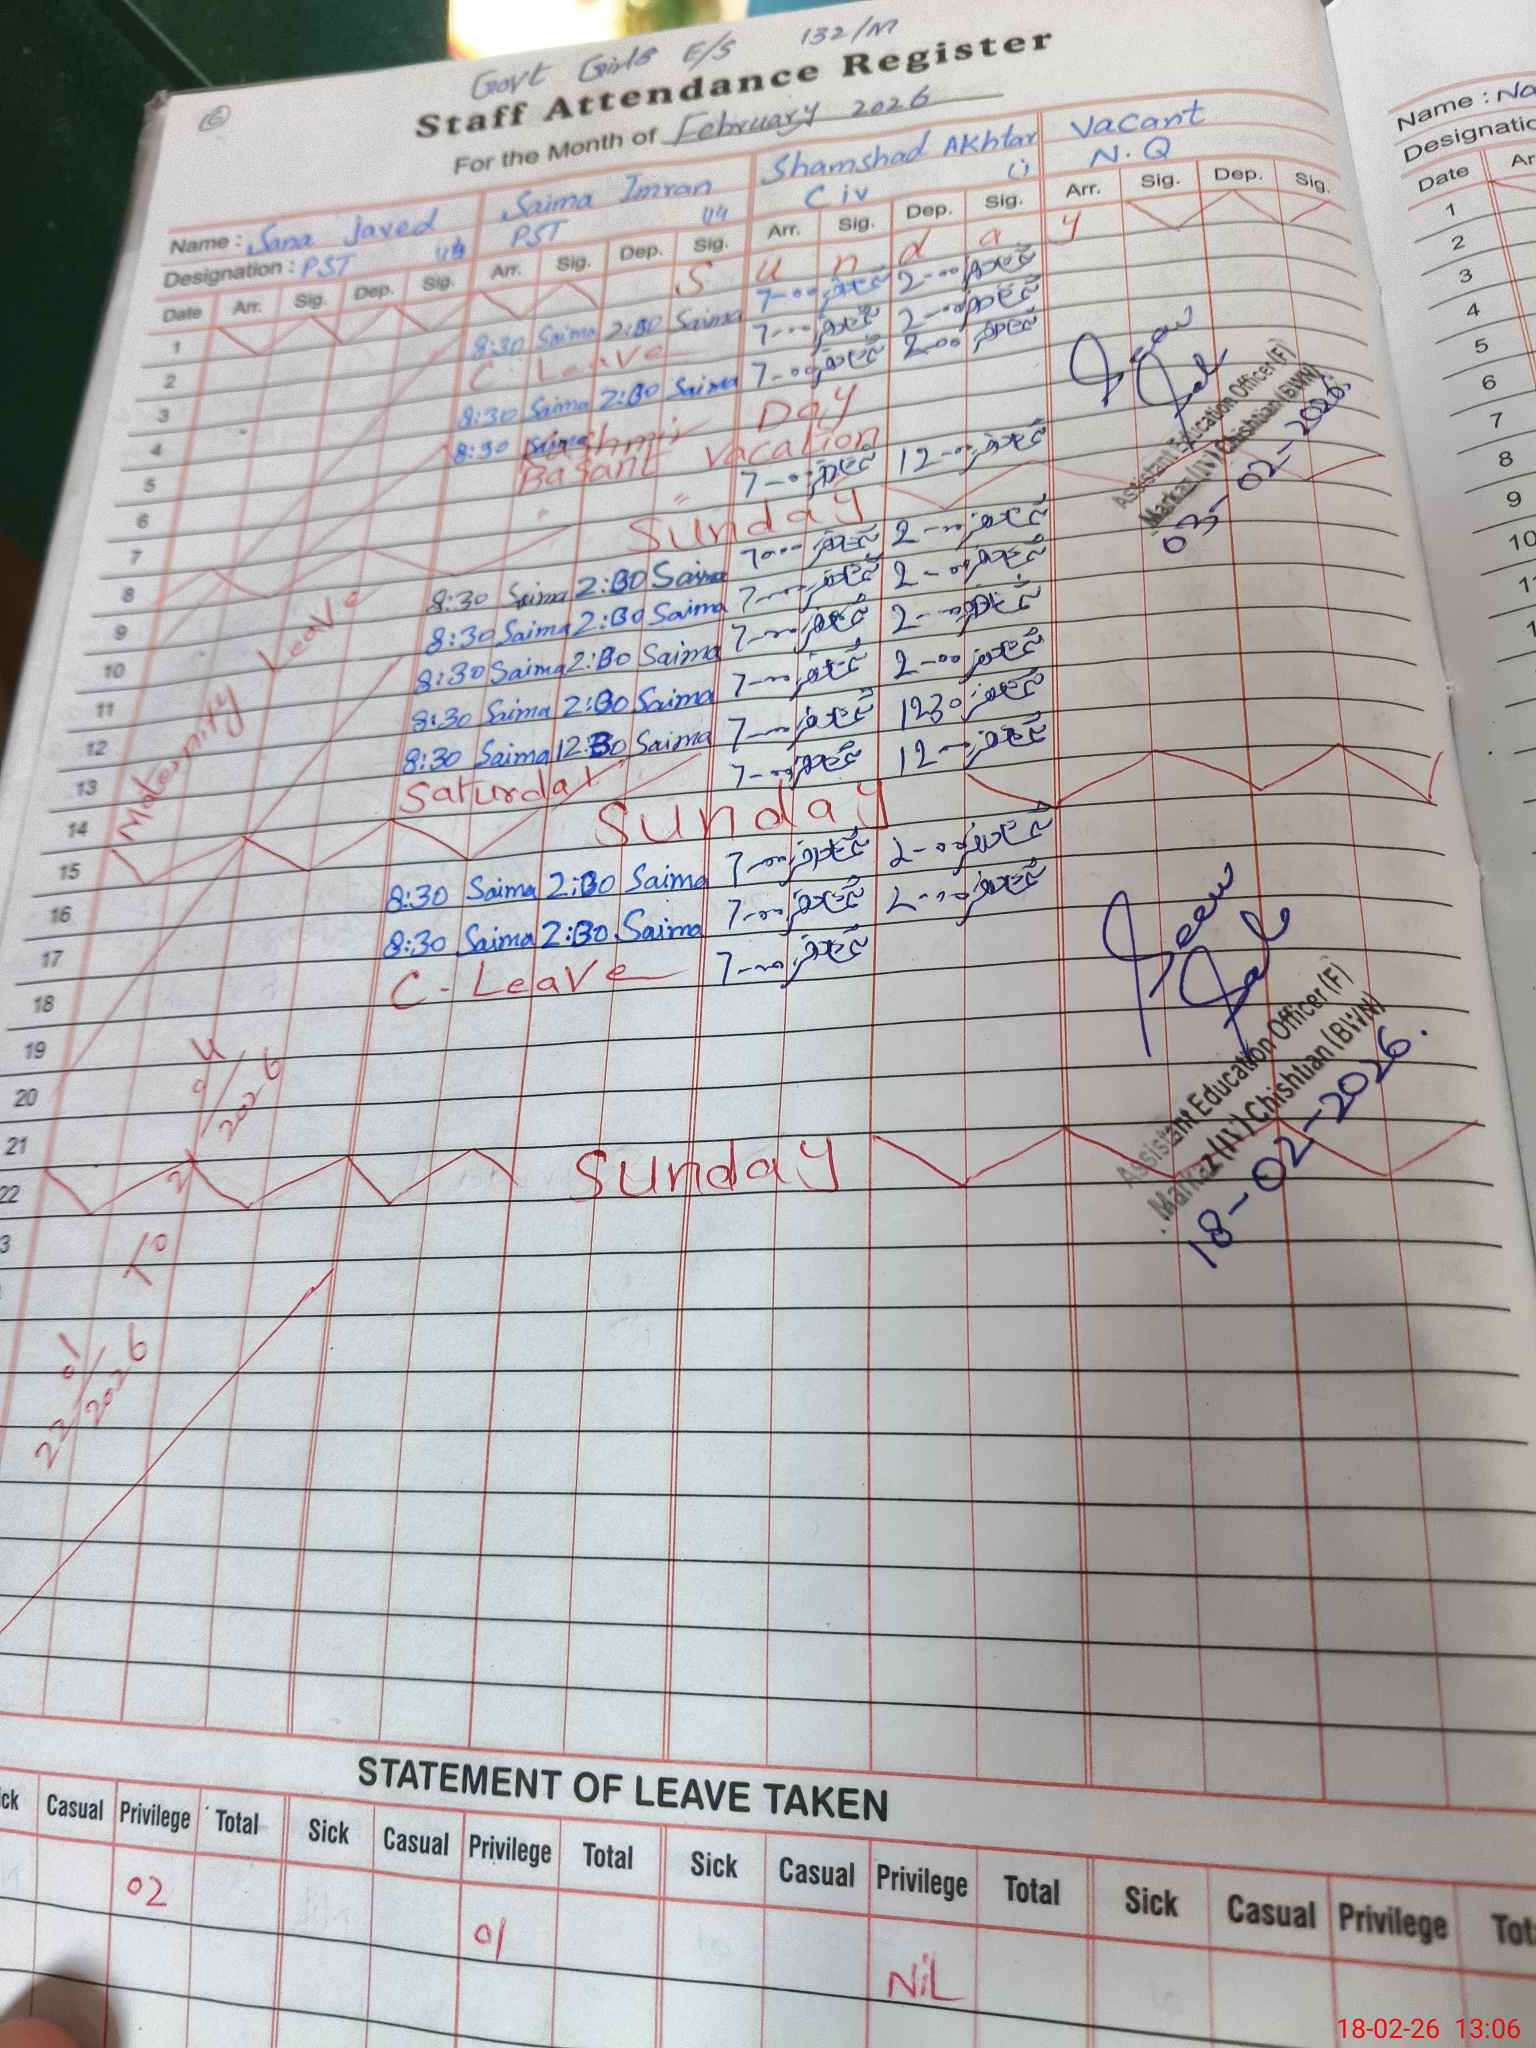 6
Govt Girls E/S 132/M
Staff Attendance Register
For the Month of February 2026
Name : Sana Javed Saima Imran Shamshad Akhtar Vacant
Designation : PST PST Civ N.Q
Date Arr. Sig. Dep. Sig. Arr. Sig. Dep. Sig. Arr. Sig. Dep. Sig. Arr. Sig. Dep. Sig.
1 S u n d a y
2 8:30 Saima 2:30 Saima 7-00 2-00
3 C. Leave 7-00 2-00
4 8:30 Saima 2:30 Saima 7-00 2-00
5 8:30 Saima Kashmir Day
6 Basant Vacation
7 " 7-00 12-00
8 Sunday
9 8:30 Saima 2:30 Saima 7-00 2-00
10 8:30 Saima 2:30 Saima 7-00 2-00
11 8:30 Saima 2:30 Saima 7-00 2-00
12 8:30 Saima 2:30 Saima 7-00 2-00
13 8:30 Saima 12:30 Saima 7-00 1230
14 Saturday 7-00 12-00
15 Sunday
16 8:30 Saima 2:30 Saima 7-00 2-00
17 8:30 Saima 2:30 Saima 7-00 2-00
18 C-Leave 7-00
19
20
21
22 Sunday
3
Maternity Leave
22/01/2026 To 21/04/2026
Assistant Education Officer (F)
Markaz (IV) Chishtian (BWN)
03-02-2026.
Assistant Education Officer (F)
Markaz (IV) Chishtian (BWN)
18-02-2026.
STATEMENT OF LEAVE TAKEN
ick Casual Privilege Total Sick Casual Privilege Total Sick Casual Privilege Total Sick Casual Privilege Tot
02 01 NiL
Name : Na
Designatio
Date Ar
1
2
3
4
5
6
7
8
9
10
1
1
18-02-26 13:06